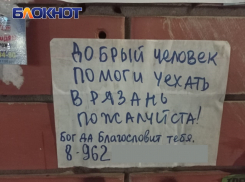 БЛОКНОТ
ДОБРЫЙ ЧЕЛОВЕК
ПОМОГИ УЕХАТЬ
В РЯЗАНЬ
ПОЖАЛУЙСТА!
БОГ ДА БЛАГОСЛОВИТ ТЕБЯ.
8-962